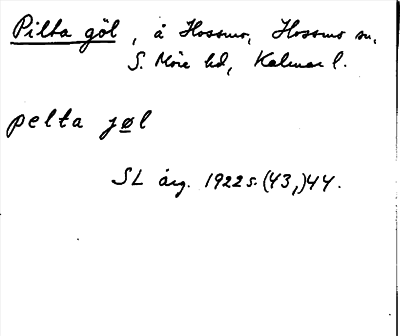 Pilta göl, å Hossmo, Hossmo sn,
S. Möre hd, Kalmar l.
pelta jøl
SL årg. 1922 s. (43,) 44.